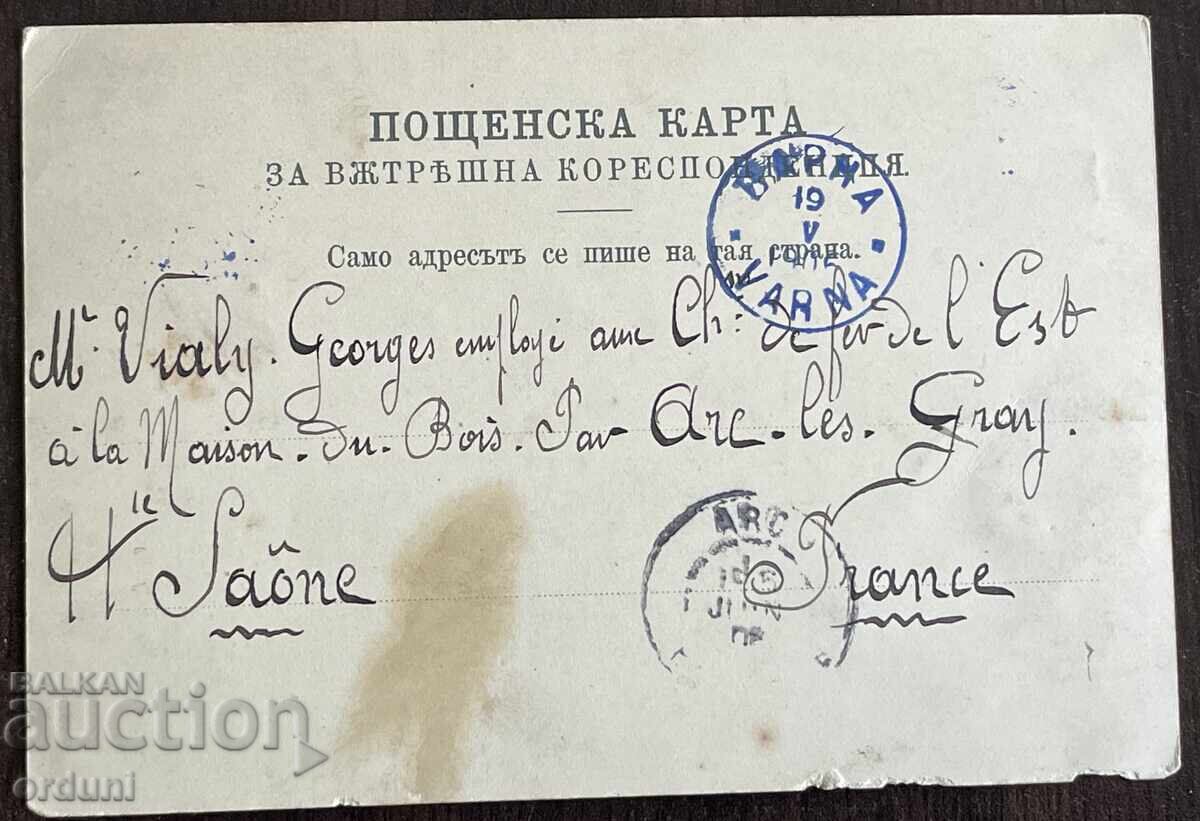 ПОЩЕНСКА КАРТА
ЗА ВѪТРѢШНА КОРЕСПОНДЕНЦИЯ.
Само адресътъ се пише на тая страна.
ВАРНА
19
V
VARNA
Mr. Vialy. Georges employé aux Ch: de fer de l'Est
à la Maison. du. Bois. Par Arc. les. Gray.
Hte Saône France
ARC
JUIN
BALKAN
auction
orduni